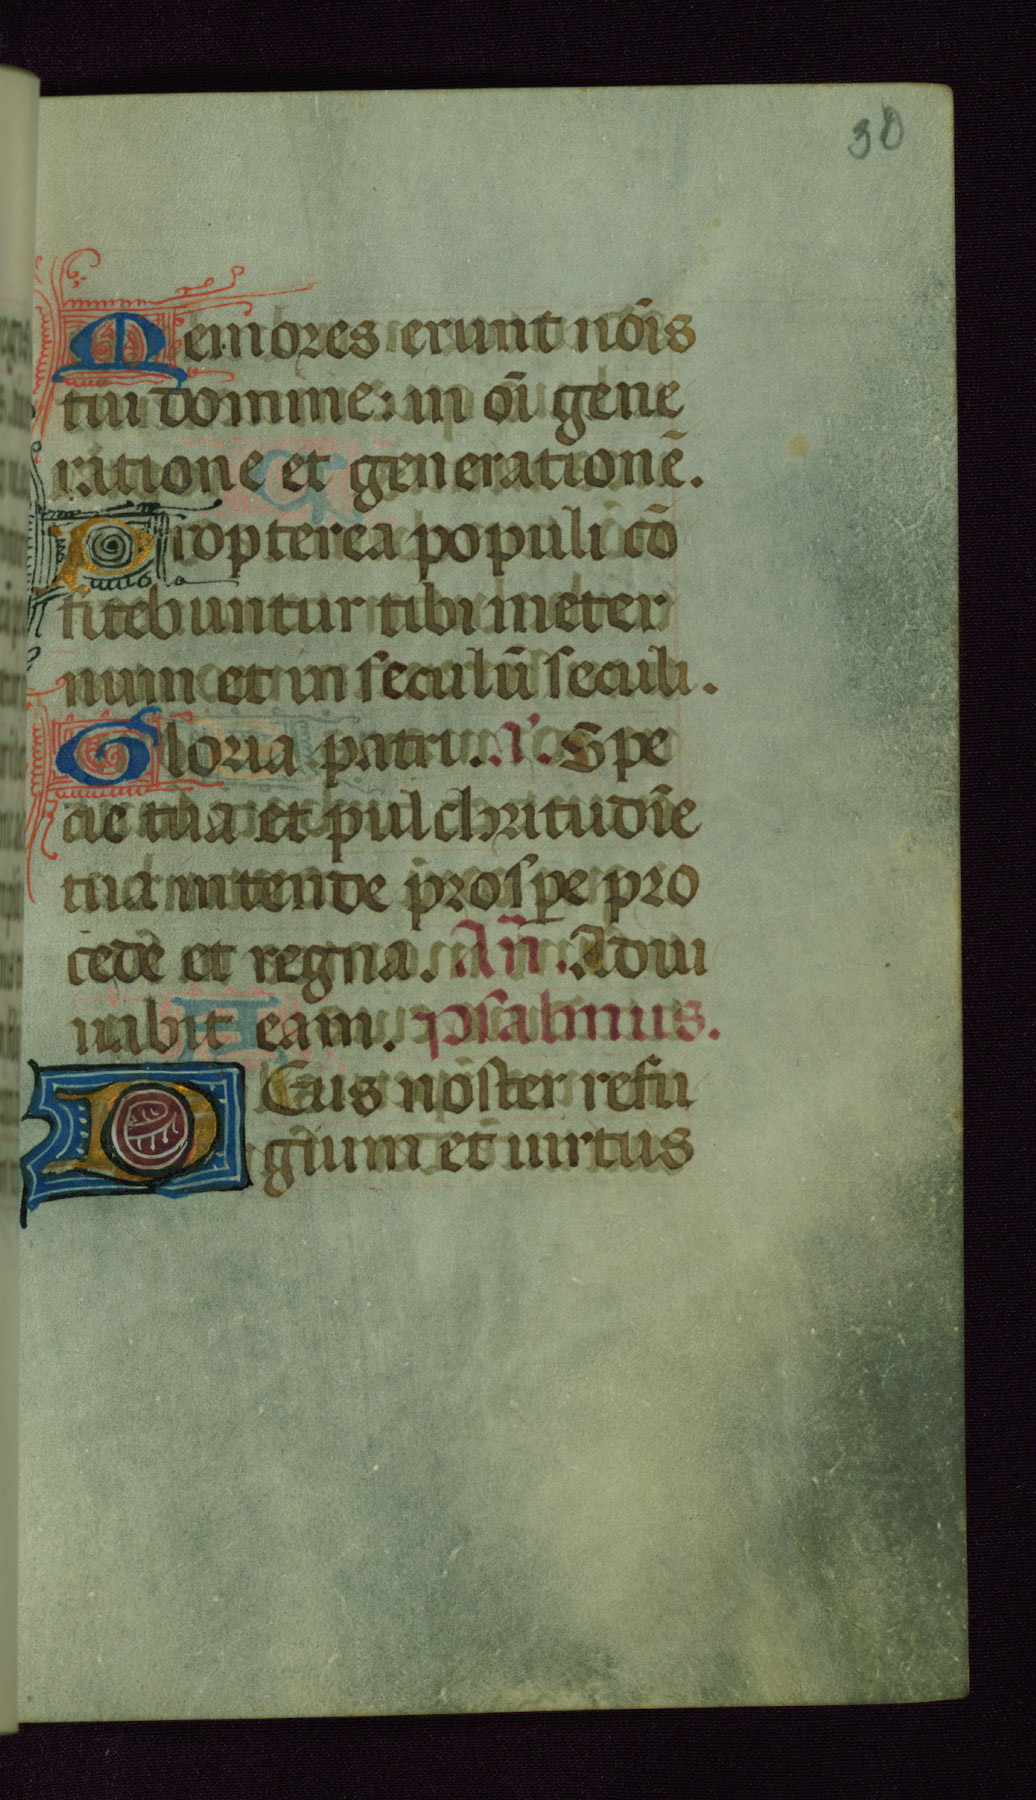 30
Memores erunt nōis
tui domine: in oī gene
ratione et generationē.
Propterea populi cō
fitebuntur tibi in eter
num et in seculū seculi.
Gloria patri. . Spe
cie tua et pulchritudīe
tua intende prospe pro
cede et regna. Añ. Adiu
uabit eam. psalmus.
DEus noster refu
gium et uirtus